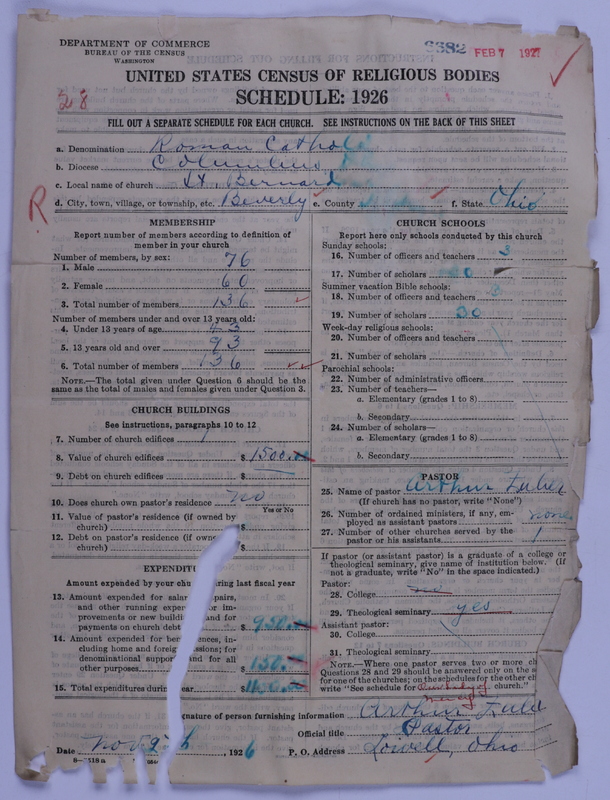 DEPARTMENT OF COMMERCE
BUREAU OF THE CENSUS
WASHINGTON
6382 FEB 7 1927
UNITED STATES CENSUS OF RELIGIOUS BODIES
SCHEDULE: 1926
28
FILL OUT A SEPARATE SCHEDULE FOR EACH CHURCH. SEE INSTRUCTIONS ON THE BACK OF THIS SHEET
a. Denomination Roman Catholic
b. Diocese Columbus
c. Local name of church St. Bernard
d. City, town, village, or township, etc. Beverly e. County f. State Ohio
R
MEMBERSHIP
Report number of members according to definition of
member in your church
Number of members, by sex:
1. Male 76
2. Female 60
3. Total number of members 136
Number of members under and over 13 years old:
4. Under 13 years of age 43
5. 13 years old and over 93
6. Total number of members 136
NOTE.—The total given under Question 6 should be the
same as the total of males and females given under Question 3.
CHURCH BUILDINGS
See instructions, paragraphs 10 to 12
7. Number of church edifices 1
8. Value of church edifices $1500.00
9. Debt on church edifices $
10. Does church own pastor's residence no
Yes or No
11. Value of pastor's residence (if owned by
church) $
12. Debt on pastor's residence (if owned
church) $
EXPENDITU
Amount expended by your chu ring last fiscal year
13. Amount expended for salar pairs,
and other running expe r im-
provements or new build and for
payments on church debt $ 950.00
14. Amount expended for ben nces, in-
cluding home and foreign ssions; for
denominational support and for all
other purposes $ 150.00
15. Total expenditures during ear $
CHURCH SCHOOLS
Report here only schools conducted by this church
Sunday schools:
16. Number of officers and teachers 3
17. Number of scholars
Summer vacation Bible schools:
18. Number of officers and teachers 3
19. Number of scholars 30
Week-day religious schools:
20. Number of officers and teachers
21. Number of scholars
Parochial schools:
22. Number of administrative officers
23. Number of teachers—
a. Elementary (grades 1 to 8)
b. Secondary
24. Number of scholars—
a. Elementary (grades 1 to 8)
b. Secondary
PASTOR
25. Name of pastor Arthur
(If church has no pastor, write "None")
26. Number of ordained ministers, if any, em-
ployed as assistant pastors none
27. Number of other churches served by the
pastor or his assistants 1
If pastor (or assistant pastor) is a graduate of a college or
theological seminary, give name of institution below. (If
not a graduate, write "No" in the space indicated.)
Pastor:
28. College no
29. Theological seminary yes
Assistant pastor:
30. College
31. Theological seminary
NOTE.—Where one pastor serves two or more ch
Questions 28 and 29 should be answered only on the s
for one of the churches; on the schedules for the other ch
write "See schedule for church."
gnature of person furnishing information Arthur
Official title Pastor
Date Nov 26, 1926 P. O. Address Lowell, Ohio